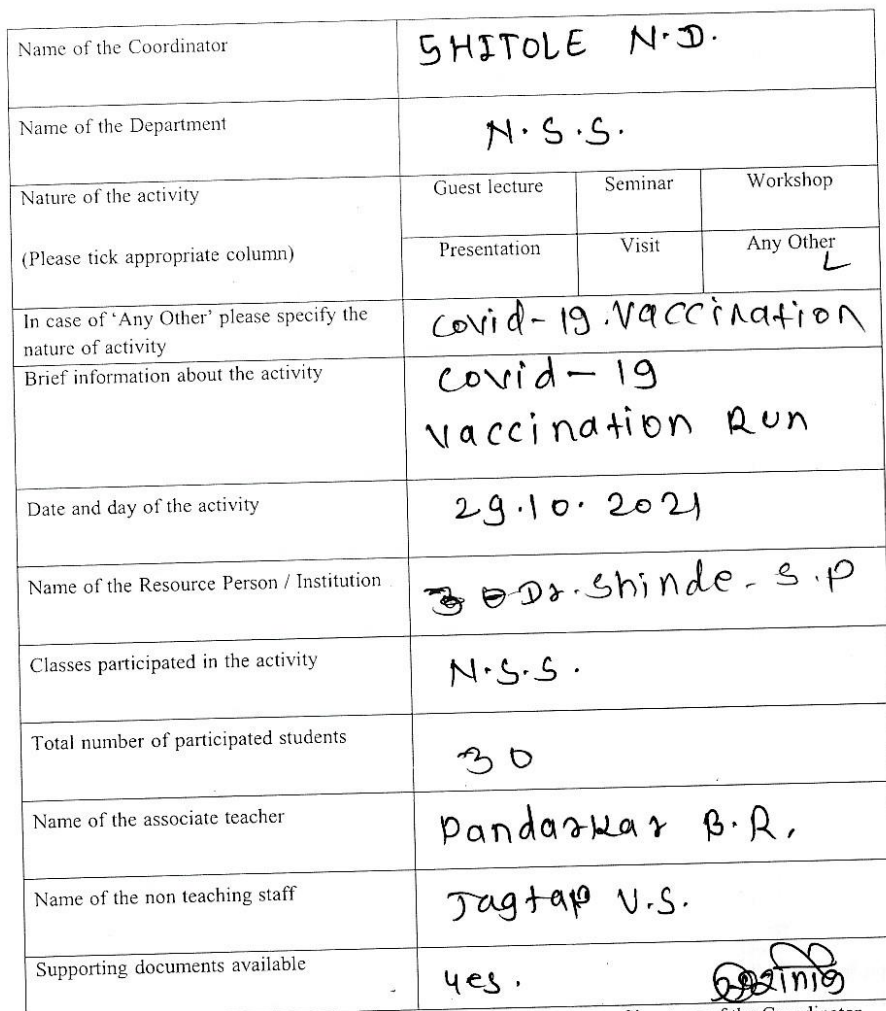 Name of the Coordinator
SHITOLE N.D.
Name of the Department
N.S.S.
Nature of the activity
(Please tick appropriate column)
Guest lecture Seminar Workshop
Presentation Visit Any Other
In case of ‘Any Other’ please specify the
nature of activity
covid-19.vaccination
Brief information about the activity
covid-19
vaccination Run
Date and day of the activity
29.10.2021
Name of the Resource Person / Institution
Dr. Shinde - S.P
Classes participated in the activity
N.S.S.
Total number of participated students
30
Name of the associate teacher
Pandarkar B.R.
Name of the non teaching staff
Jagtap V.S.
Supporting documents available
yes.
of the Coordinator